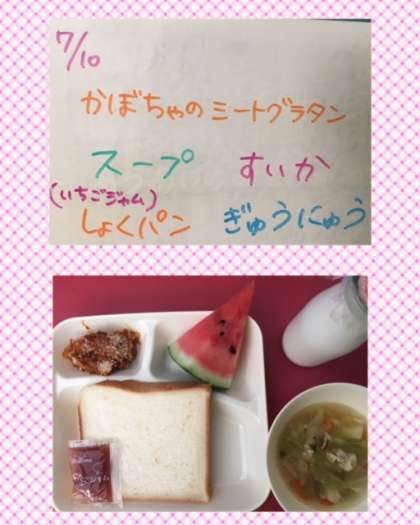 7/10
かぼちゃのミートグラタン
スープ すいか
(いちごジャム)
しょくパン ぎゅうにゅう